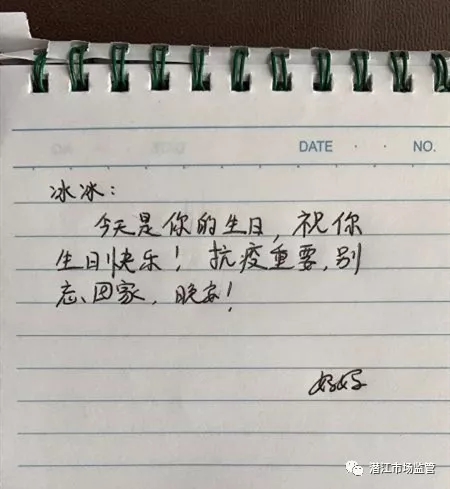 DATE · · NO.
冰冰:
今天是你的生日,祝你
生日快乐!抗疫重要,别
忘回家,晚安!
好好
潜江市场监管